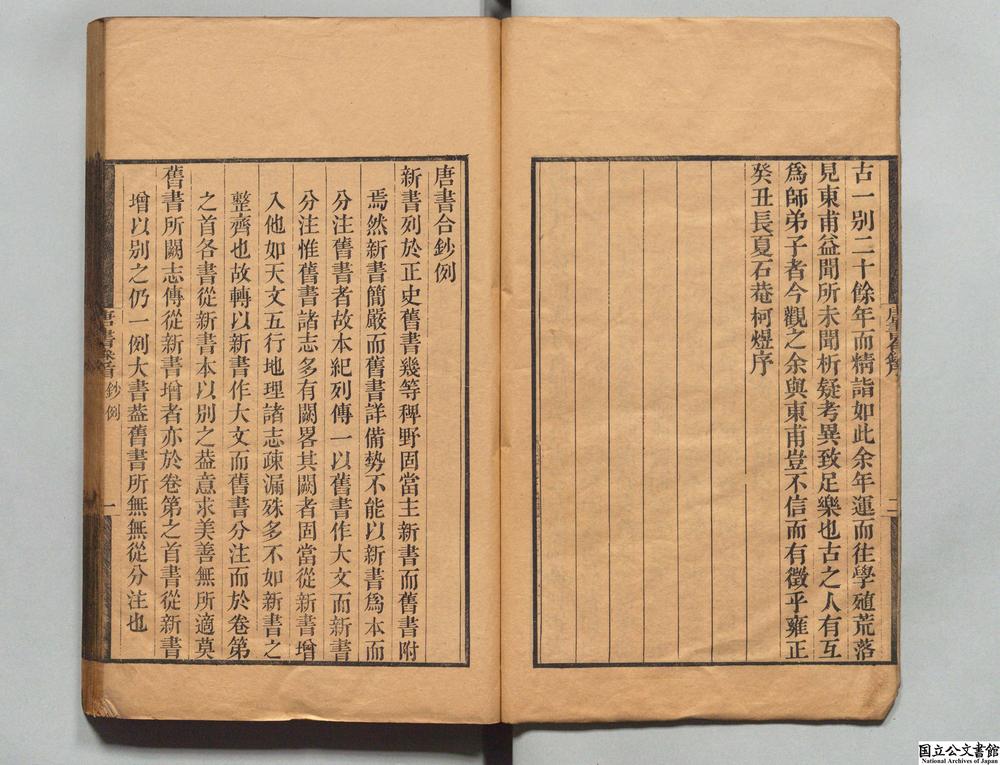 古一别二十餘年而精詣如此余年運而往學殖荒落
見東甫益聞所未聞析疑考異致足樂也古之人有互
爲師弟子者今觀之余與東甫豈不信而有徵乎雍正
癸丑長夏石菴柯煜序
二
唐書合鈔例
新書列於正史舊書幾等稗野固當主新書而舊書附
焉然新書簡嚴而舊書詳備勢不能以新書爲本而
分注舊書者故本紀列傳一以舊書作大文而新書
分注惟舊書諸志多有闕畧其闕者固當從新書增
入他如天文五行地理諸志疎漏殊多不如新書之
整齊也故轉以新書作大文而舊書分注而於卷第
之首各書從新書本以别之葢意求美善無所適莫
舊書所闕志傳從新書增者亦於卷第之首書從新書
增以别之仍一例大書葢舊書所無無從分注也
唐書卷首 鈔例
一
国立公文書館
National Archives of Japan